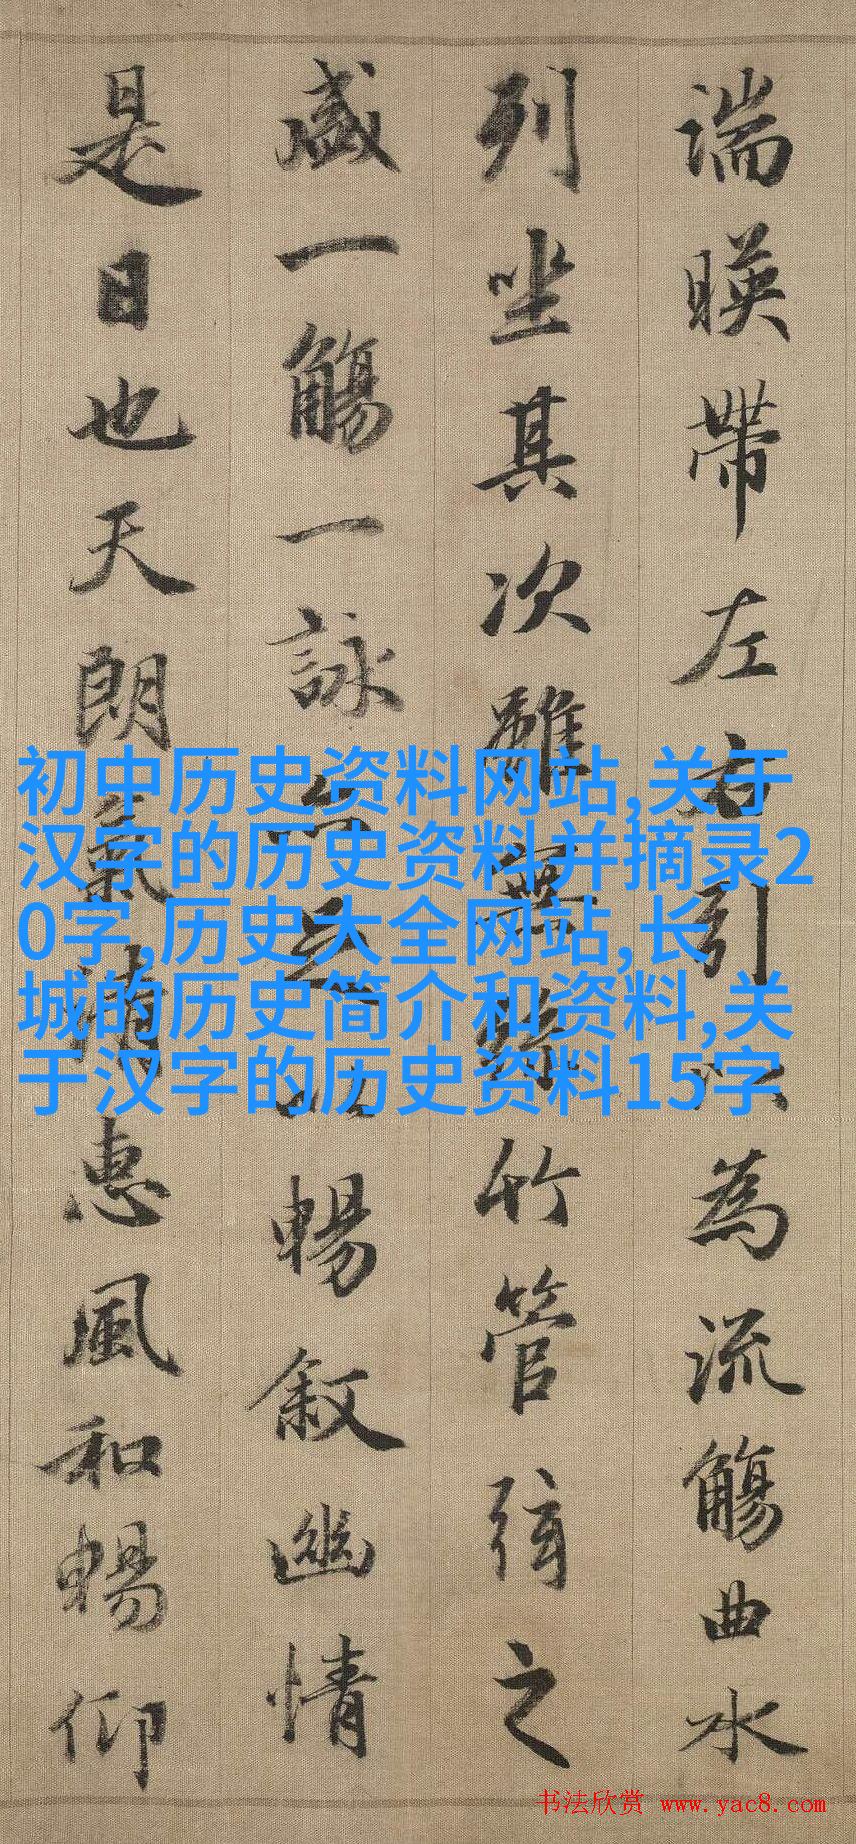 湍暎帶左右引以為流觴曲水
列坐其次雖無絲竹管弦之
盛一觴一詠亦足以暢叙幽情
是日也天朗氣清惠風和暢仰
初中历史资料网站,关于
汉字的历史资料并摘录2
0字,历史大全网站,长
城的历史简介和资料,关
于汉字的历史资料15字
书法欣赏 www.yac8.com